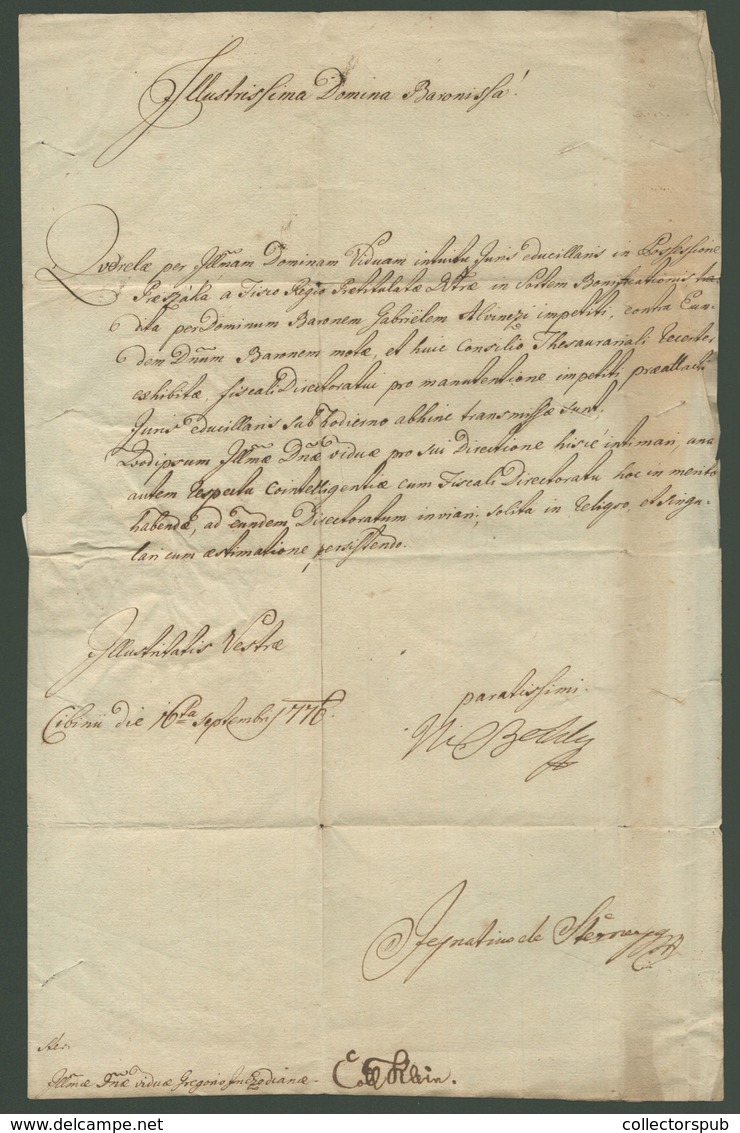 Illustrissima Domina Baronissa!
Qverelæ per Jllmam Dominam Viduam intuitu Juris educillaris in Possessione
a Fisco Regio Prætitulatæ in Sortem Bonificationis tra-
dita per Dominum Baronem Gabriëlem Alvinczi impetiti, contra Eun-
dem Dnum Baronem motæ, et huic Consilio Thesaurariali recenter
exhibitæ, fiscali Directoratui pro manutentione impetiti præattacti
Juris educillaris sub hodierno abhinc transmissæ sunt,
Qvod ipsum Jllmæ Dnæ viduæ pro sui Directione hisce intimari, una
autem respectu Cointelligentiæ cum Fiscali Directoratu hoc in merito
habendæ, ad eundem Directoratum inviari, solita in reliqvo, et singu-
lari cum æstimatione persistendo.
Illustritatis Vestræ
paratissimi.
Cibinii die 16ta Septembris 1776.
Ignatius de
Jllmæ Dnæ viduæ Gregorio
Coll Klein.
collectorspub.com